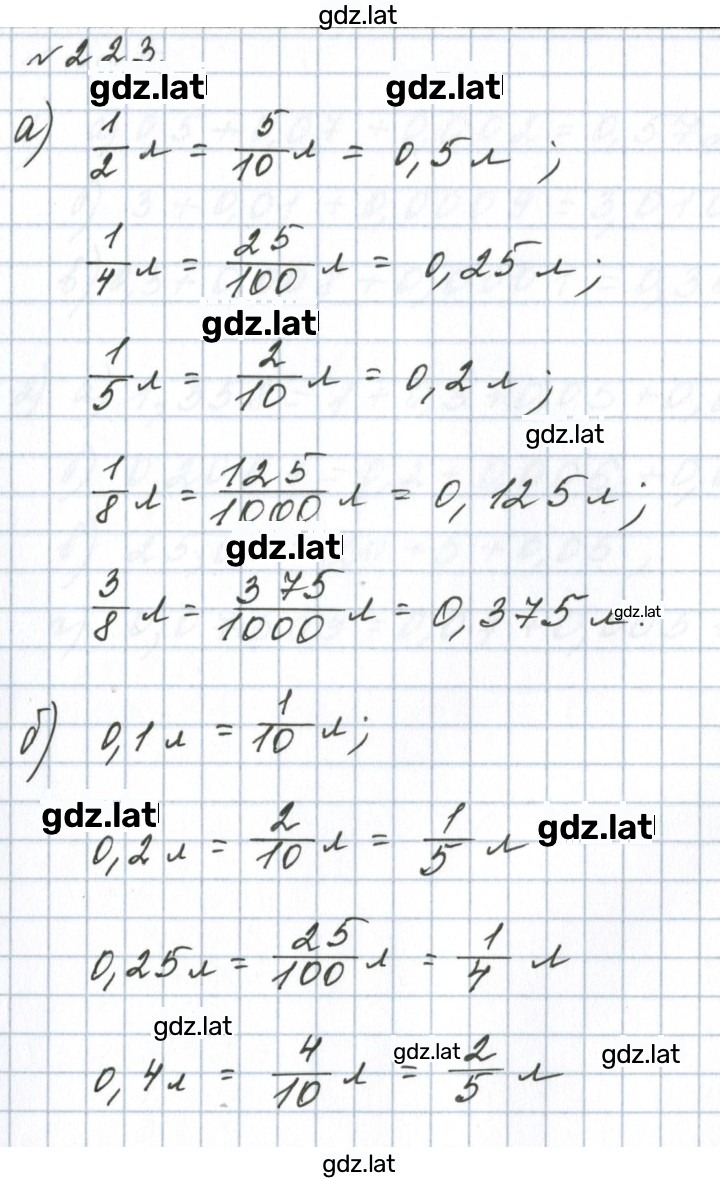 gdz.lat
№ 223
gdz.lat gdz.lat
а) 1/2 л = 5/10 л = 0,5 л ;
1/4 л = 25/100 л = 0,25 л ;
gdz.lat
1/5 л = 2/10 л = 0,2 л ;
gdz.lat
1/8 л = 125/1000 л = 0,125 л ;
gdz.lat
3/8 л = 375/1000 л = 0,375 л .
gdz.lat
б) 0,1 л = 1/10 л ;
gdz.lat gdz.lat
0,2 л = 2/10 л = 1/5 л
0,25 л = 25/100 л = 1/4 л
gdz.lat gdz.lat gdz.lat
0,4 л = 4/10 л = 2/5 л
gdz.lat